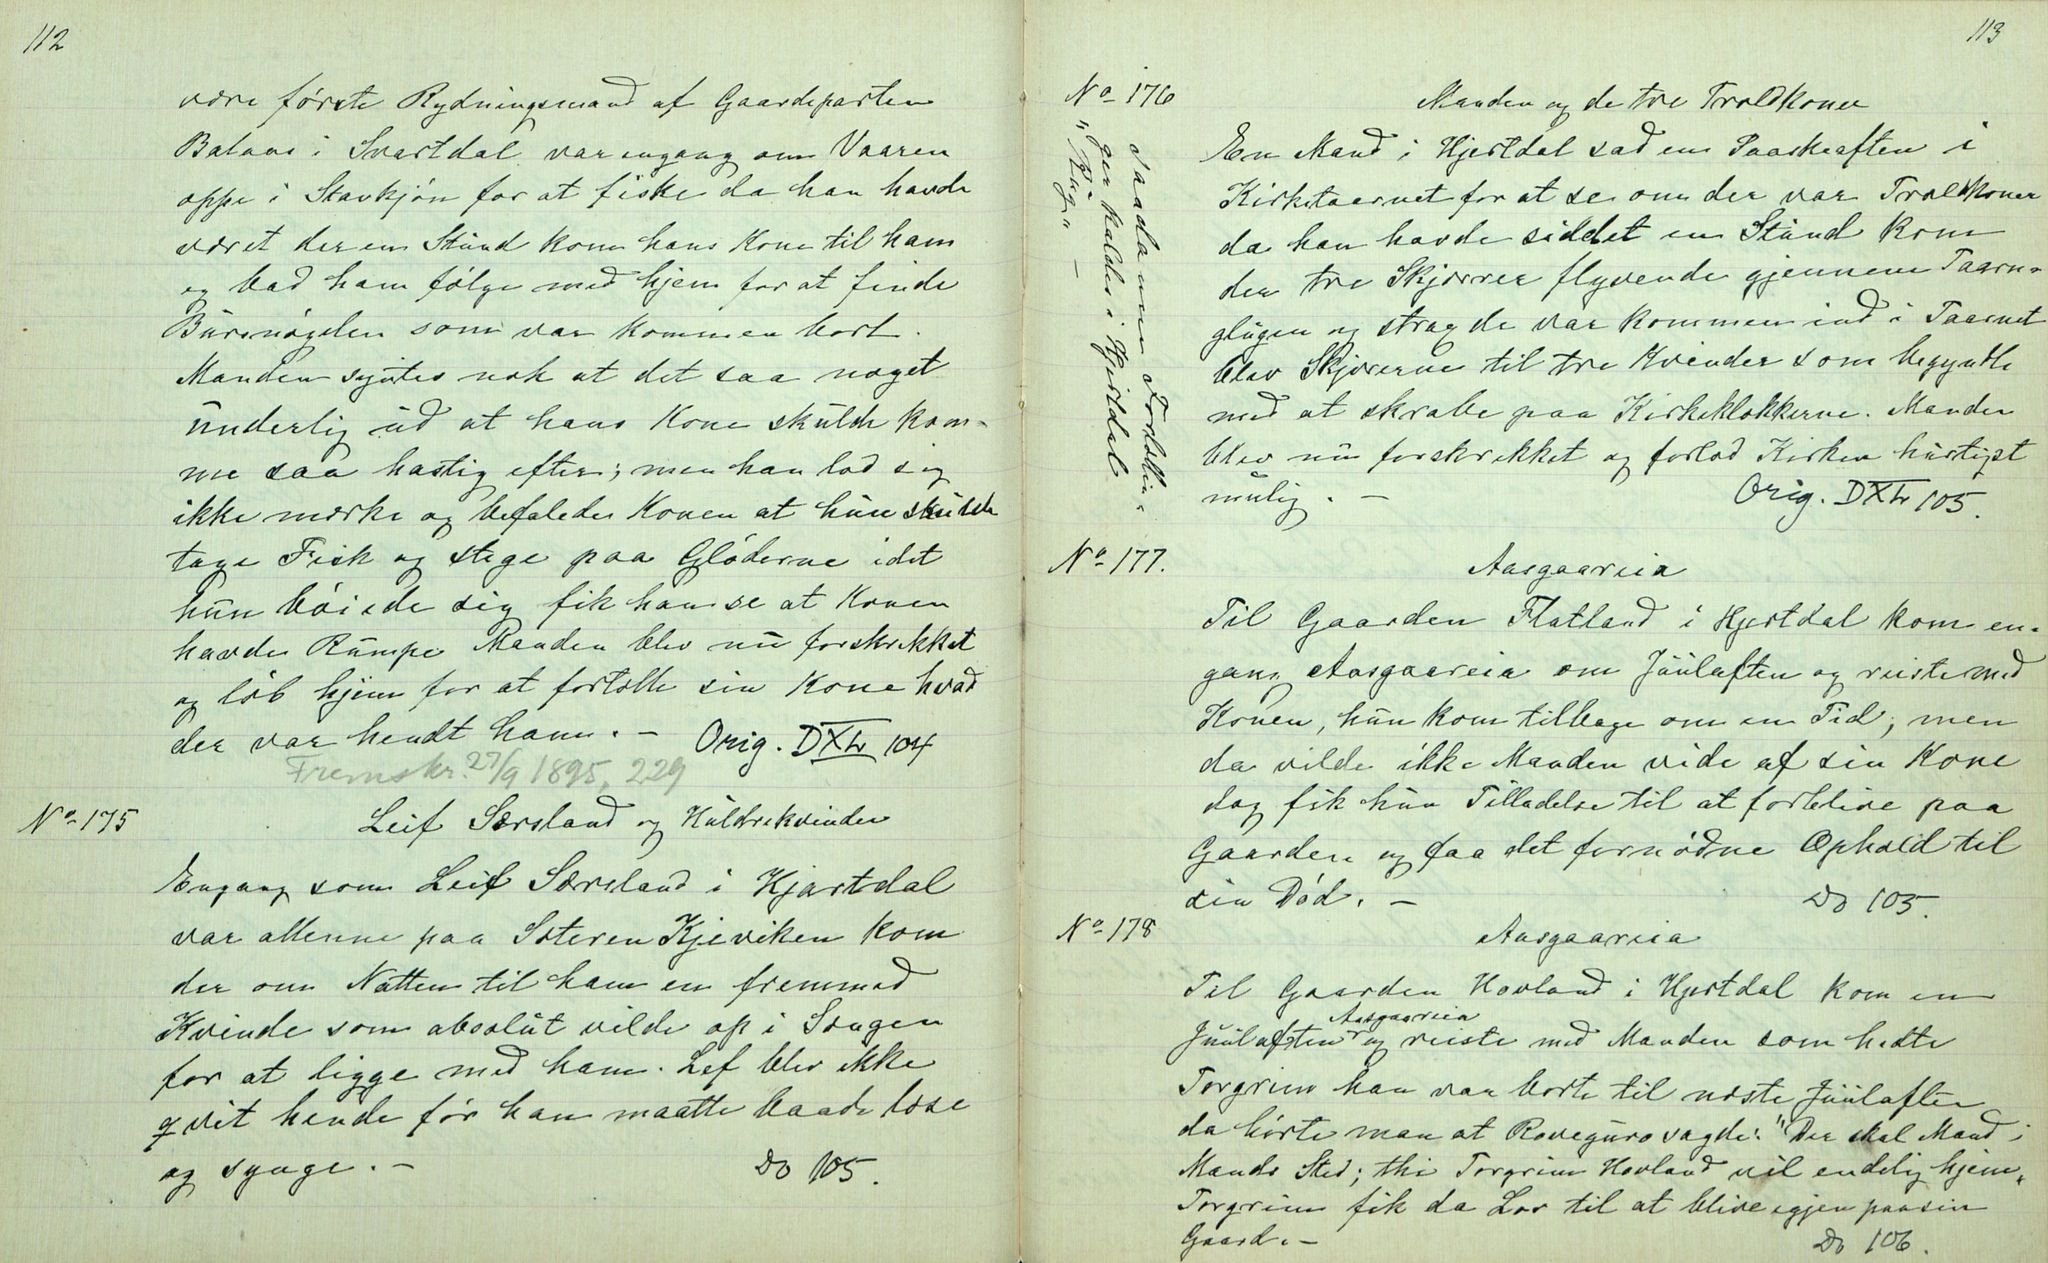 112
være første Rydningsmand af Gaardeparten
Balaas i Svartdal var engang om Vaaren
oppe i Stavkjøn for at fiske da han havde
været der en Stund kom hans Kone til ham
og bad ham følge med hjem for at finde
Bursnøgelen som var kommen bort.
Manden syntes nok at det saa noget
underlig ud at hans Kone skulde kom-
me saa hastig efter; men han lod sig
ikke mærke og befalede Konen at hun skulde
tage Fisk og stege paa Gløderne idet
hun bøiede sig fik han se at Konen
havde Rumpe Manden blev nu forskrekket
og løb hjem for at fortælle sin Kone hvad
der var hendt ham. - Orig. DXL 104
Fremskr. 27/9 1895, 229
No 175
Leif Særsland og Huldrekvinden
Engang som Leif Særsland i Hjartdal
var allenne paa Sæteren Kjeviken kom
der om Natten til ham en fremmed
Kvinde som absolut vilde op i Sengen
for at ligge med ham. Lef blev ikke
qvit hende før han maatte baade læse
og synge. - Do 105.
113
No 176
Manden og de tre Troldkoner
Saadanne Fortællin-
ger kaldes i Hjertdal
"Rug" -
En Mand i Hjertdal sad en Paaskeaften i
Kirketaarnet for at se om der var Troldkoner
da han havde siddet en Stund kom
der tre Skjærer flyvende gjennem Taarn-
glugen og strax de var kommen ind i Taarnet
blev Skjærerne til tre Kvinder som begyndte
med at skrabe paa Kirkeklokkerne. Manden
blev nu forskrekket og forlod Kirken hurtigst
mulig. - Orig. DXL 105.
No 177.
Aasgaareia
Til Gaarden Flatland i Hjertdal kom en-
gang Aasgaareia om Juulaften og reiste med
Konen, hun kom tilbage om en Tid, men
da vilde ikke Manden vide af sin Kone
dog fik hun Tilladelse til at forblive paa
Gaarden og faa det fornødne Ophold til
sin Død. - Do 105.
No 178
Aasgaareia
Til Gaarden Hovland i Hjertdal kom en
Juulaften Aasgaareia og reiste med Manden som hedte
Torgrim han var borte til næste Juulaften
da hørte man at Roveguro sagde: "Der skal Mand i
Mands Sted; thi Torgrim Hovland vil endelig hjem"
Torgrim fik da Lov til at blive igjen paa sin
Gaard. - Do 106.